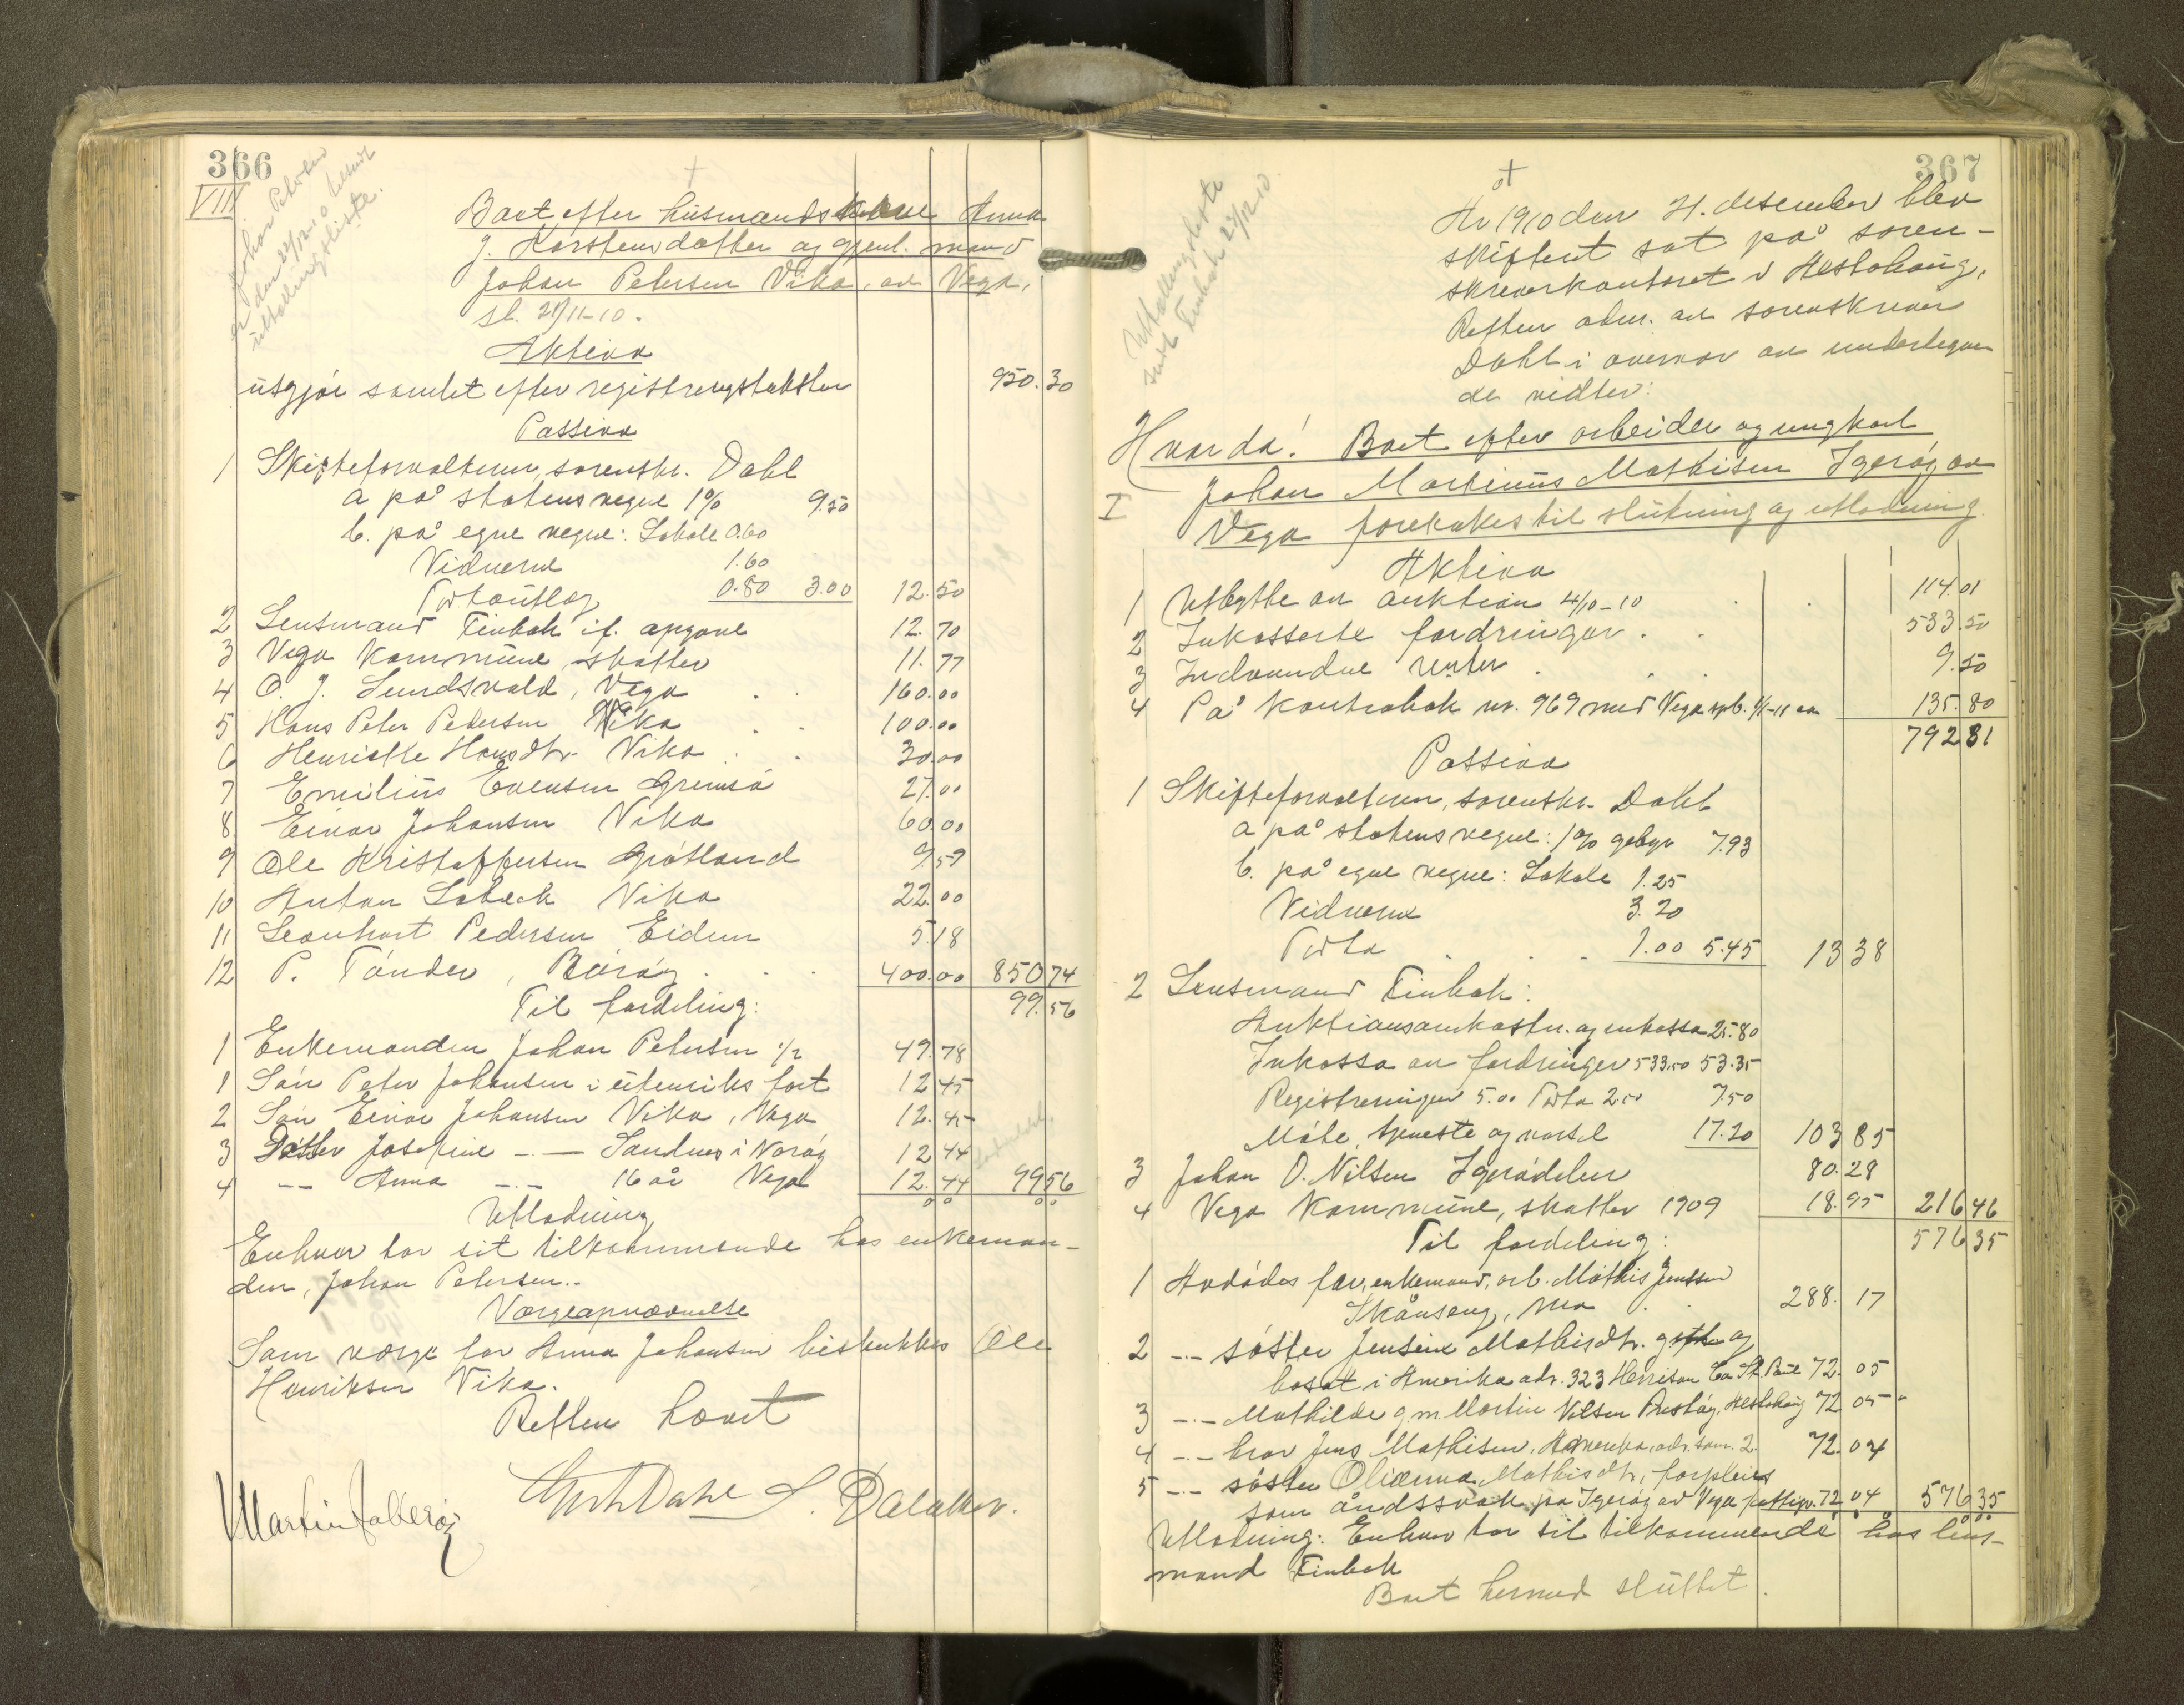 366
VIII
Johan Petersen
er den 22/12-10 tilsendt
utlodningsliste.
Boet efter husmandskone Anna
J. Karstensdatter og gjenl. mand
Johan Petersen Vika av Vega,
sl. 21/11-10.
Aktiva
utgjør samlet efter registreringstakster 950.30
Passiva
1 Skifteforvalteren, sorenskr. Dahl
a på statens vegne 1% 9.50
b. på egne vegne: Lokale 0.60
Vidnerne 1.60
Portoutlæg 0.80 3.00 12.50
2 Lensmand Finbak if. opgave 12.70
3 Vega kommune, skatter 11.77
4 O. J. Sundsvold, Vega 160.00
5 Hans Peter Pedersen Vika 100.00
6 Henriette Hansdtr. Vika 30.00
7 Emilius Evensen Gremsø 27.00
8 Einar Johansen Vika 60.00
9 Ole Kristoffersen Grøtland 9.59
10 Anton Sobeck Vika 22.00
11 Leonhart Pedersen Eidem 5.18
12 P. Tønder, Borøy 400.00 850 74
Til fordeling: 99.56
1 Enkemanden Johan Petersen 1/2 49.78
1 Søn Peter Johansen i utenriks fart 12 45
2 Søn Einar Johansen Vika, Vega 12.45
3 Datter Josefine -.- Sandnes i Norøy 12 44
4 -- Anna -.- 16 år Vega 12.44 99 56
Utlodning
Enhver tar sit tilkommende hos enkeman-
den, Johan Petersen..
Værgeopnævnelse
Som værge for Anna Johansen beskikkes Ole
Henriksen Vika.
Retten hævet
Dahl
367
Utlodningsliste
sendt Finbak 22/12 10
År 1910 den 21. desember blev
skifteret sat på soren-
skriverkontoret i Alstahaug,
Retten adm. av sorenskriver
Dahl i overvær av undertegne
de vidner:
Hvorda! Boet efter arbeider og ungkarl
I Johan Martinus Mathisen Igerøy av
Vega foretakes til slutning og utlodning.
Aktiva
1 Utbytte av auktion 4/10-10 114.01
2 Inkasserte fordringer 533.50
3 Indvundne renter 9.50
4 På kontrabok nr. 969 med Vega spb. 1/1-11 ca 135.80
792 81
Passiva
1 Skifteforvalteren, sorenskr. Dahl
a på statens vegne: 1% gebyr 7.93
b. på egne vegne: Lokale 1.25
Vidnerne 3.20
Porto 1.00 5.45 13 38
2 Lensmand Finbak:
Auktionsomkostn. og inkasso 25.80
Inkasso av fordringer 533.50 53.35
Registreringen 5.00 Porto 2.50 7.50
Møte, tjeneste og varsel 17.20 103 85
3 Johan O. Nilsen Igerødelen 80.28
4 Vega kommune, skatter 1909 18.95 216 46
Til fordeling: 576 35
1 Avdødes far, enkemand, arb. Mathis Jenssen
Skånseng, Mo 288.17
2 -.- søster Jensine Mathisdtr. gift og
bosat i Amerika adr. 323 Harrison St. Paul 72.05
3 -.- Mathilde g.m. Martin Nilsen Prestøy, Alstahaug 72 05
4 -.- bror Jens Mathisen, Amerika, adr. som 2. 72.04
5 -.- søster Olianna Mathisdtr, forpleies
som åndssvak på Igerøy av Vega fattigv. 72 04 576 35
Utlodning: Enhver tar sit tilkommende hos lens-
mand Finbak
Boet hermed sluttet.